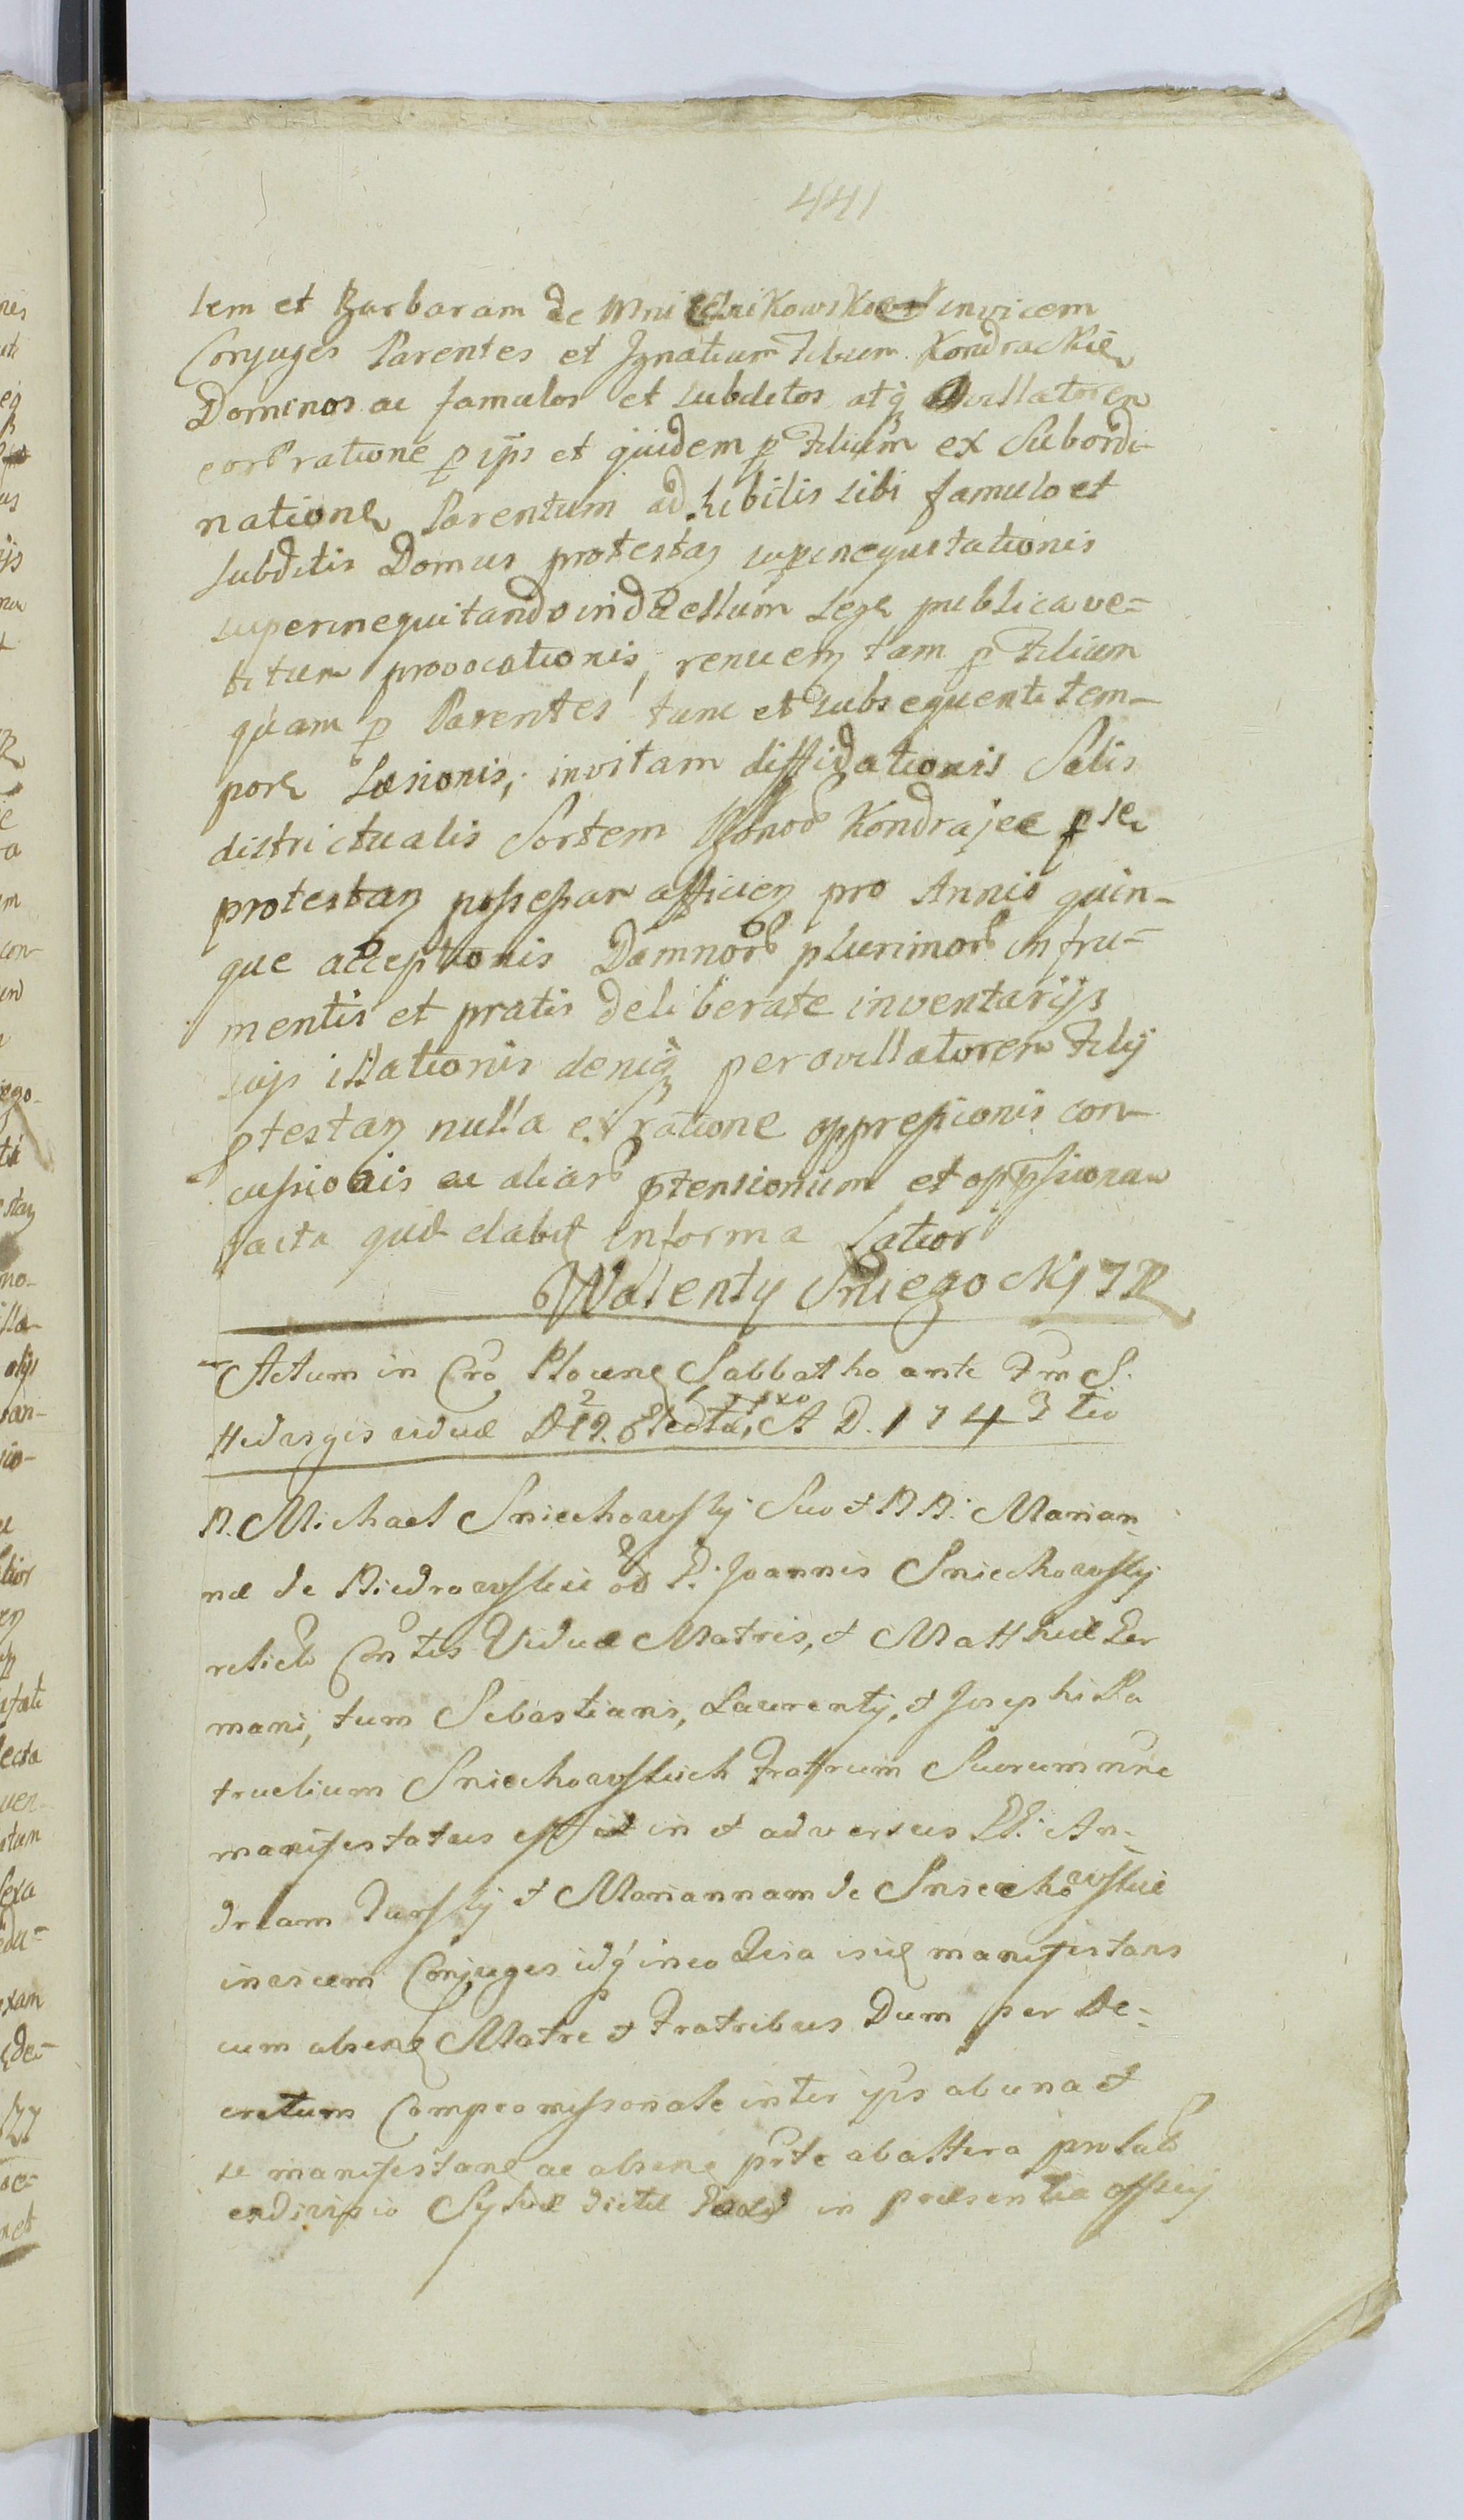 441
lem et Barbaram de invicem
Conjuges Parentes et Ignatium Filium Kondrackie
Dominos ac famulos et subditos atq
eorb ratione p ips et quidem p Filium ex Subordi-
natione Parentum ad sibi famulo et
subditis Domus protestan superinequitationis
superinequitando in duellum lege publica ve-
titum provocationis, renuen tam p Filium
quam p Parentes tunc et subsequenti tem-
pore Læsionis, in vitam diffidationis Salis
districtualis Sortem Bonorb Kondrajec p se
protestan possessam afficien pro Annis quin-
que acceptionis Damnorb plurimorb in fru-
mentis et pratis deliberate inventarijs
suis illationis deniq per avillatorem Filij
ptestan nulla ex ratione oppressionis con-
cussionis ac aliarb ptensionum et oppssionum
facta quæ dabit in forma latior
Walenty Sniegocki
Actum in Cro Plocen Sabbatho ante Fm S.
Hedvigis viduæ D 12. 8bris A D. 1743 tio
N. Michael Sniechowsky Suo et N. N. Marian-
næ de Biedrowskie od P. Joannis Sniechowsky
relictæ Contis Viduæ Matris, et Matthiæ Ger
mani, tum Sebastiani, Laurentij, et Josephi Pa
truelium Sniechowskich Fratrum Suorum nne
manifestatus est in et adversus PP. An-
dream Turski et Mariannam de Sniechowskie
invicem Conjuges idq in eo Quia isti manifestans
cum absen Matre et Fratribus Dum per De-
cretum Compromissionale inter ips ab una et
se manifestan ac absen pte ab altera prolato
ex divisio Sylvæ dictæ in præsentia officij